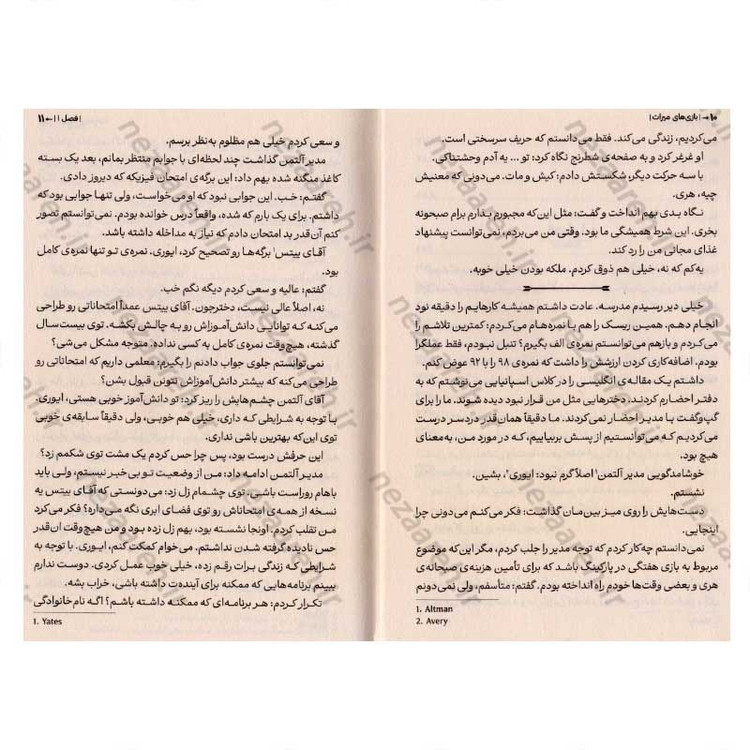 ۱۰ → | بازی‌های میراث |
می‌کردیم، زندگی می‌کند. فقط می‌دانستم که حریف سرسختی است.
او غرغر کرد و به صفحه‌ی شطرنج نگاه کرد: تو ... یه آدم وحشتناکی.
با سه حرکت دیگر، شکستش دادم: کیش و مات. می‌دونی که معنیش
چیه، هری.
نگاه بدی بهم انداخت و گفت: مثل این‌که مجبورم بذارم برام صبحونه
بخری. این شرط همیشگی ما بود. وقتی من می‌بردم، نمی‌توانست پیشنهاد
غذای مجانی من را رد کند.
یه‌کم که نه، خیلی هم ذوق کردم. ملکه بودن خیلی خوبه.
خیلی دیر رسیدم مدرسه. عادت داشتم همیشه کارهایم را دقیقه نود
انجام دهم. همین ریسک را هم با نمره‌هام می‌کردم: کمترین تلاشم را
می‌کردم و بازهم می‌توانستم نمره‌ی الف بگیرم؟ تنبل نبودم، فقط عملگرا
بودم. اضافه‌کاری کردن ارزشش را داشت که نمره‌ی ۹۸ را با ۹۲ عوض کنم.
داشتم یک مقاله‌ی انگلیسی را در کلاس اسپانیایی می‌نوشتم که به
دفتر احضارم کردند. دخترهایی مثل من قرار نبود دیده شوند. ما را برای
گپ‌وگفت با مدیر احضار نمی‌کردند. ما دقیقاً همان‌قدر دردسر درست
می‌کردیم که می‌توانستیم از پسش بربیاییم، که در مورد من، به‌معنای
هیچ بود.
خوشامدگویی مدیر آلتمن¹ اصلاً گرم نبود: ایوری²، بشین.
نشستم.
دست‌هایش را روی میز بین‌مان گذاشت: فکر می‌کنم می‌دونی چرا
اینجایی.
نمی‌دانستم چه‌کار کردم که توجه مدیر را جلب کردم، مگر این‌که موضوع
مربوط به بازی هفتگی در پارکینگ باشد که برای تأمین هزینه‌ی صبحانه‌ی
هری و بعضی وقت‌ها خودم راه انداخته بودم. گفتم: متأسفم، ولی نمی‌دونم
1. Altman
2. Avery
| فصل ۱ | ← ۱۱
و سعی کردم خیلی هم مظلوم به‌نظر برسم.
مدیر آلتمن گذاشت چند لحظه‌ای با جوابم منتظر بمانم، بعد یک بسته
کاغذ منگنه شده بهم داد: این برگه‌ی امتحان فیزیکه که دیروز دادی.
گفتم: خب. این جوابی نبود که او می‌خواست، ولی تنها جوابی بود که
داشتم. برای یک بارم که شده، واقعاً درس خوانده بودم. نمی‌توانستم تصور
کنم آن‌قدر بد امتحان دادم که نیاز به مداخله داشته باشد.
آقای ییتس¹ برگه‌ها رو تصحیح کرد، ایوری. نمره‌ی تو تنها نمره‌ی کامل
بود.
گفتم: عالیه و سعی کردم دیگه نگم خب.
نه، اصلاً عالی نیست، دخترجون. آقای ییتس عمداً امتحاناتی رو طراحی
می‌کنه که توانایی دانش‌آموزاش رو به چالش بکشه. توی بیست سال
گذشته، هیچ‌وقت نمره‌ی کامل به کسی نداده. متوجه مشکل می‌شی؟
نمی‌توانستم جلوی جواب دادنم را بگیرم: معلمی داریم که امتحاناتی رو
طراحی می‌کنه که بیشتر دانش‌آموزاش نتونن قبول بشن؟
آقای آلتمن چشم‌هایش را ریز کرد: تو دانش‌آموز خوبی هستی، ایوری.
با توجه به شرایطی که داری، خیلی هم خوبی، ولی دقیقاً سابقه‌ی خوبی
توی این‌که بهترین باشی نداری.
این حرفش درست بود، پس چرا حس کردم یک مشت توی شکمم زد؟
مدیر آلتمن ادامه داد: من از وضعیت تو بی‌خبر نیستم، ولی باید
باهام روراست باشی. توی چشمام زل زد: می‌دونستی که آقای ییتس یه
نسخه از همه‌ی امتحاناش رو توی فضای ابری نگه می‌داره؟ فکر می‌کرد
من تقلب کردم. اونجا نشسته بود، بهم زل زده بود و من هیچ‌وقت ان‌قدر
حس نادیده گرفته شدن نداشتم. می‌خوام کمکت کنم، ایوری. با توجه به
شرایطی که زندگی برات رقم زده، خیلی خوب عمل کردی. دوست ندارم
ببینم برنامه‌هایی که ممکنه برای آینده‌ت داشته باشی، خراب بشه.
تکرار کردم: هر برنامه‌ای که ممکنه داشته باشم؟ اگه نام خانوادگی
1. Yates
nezaareh.ir